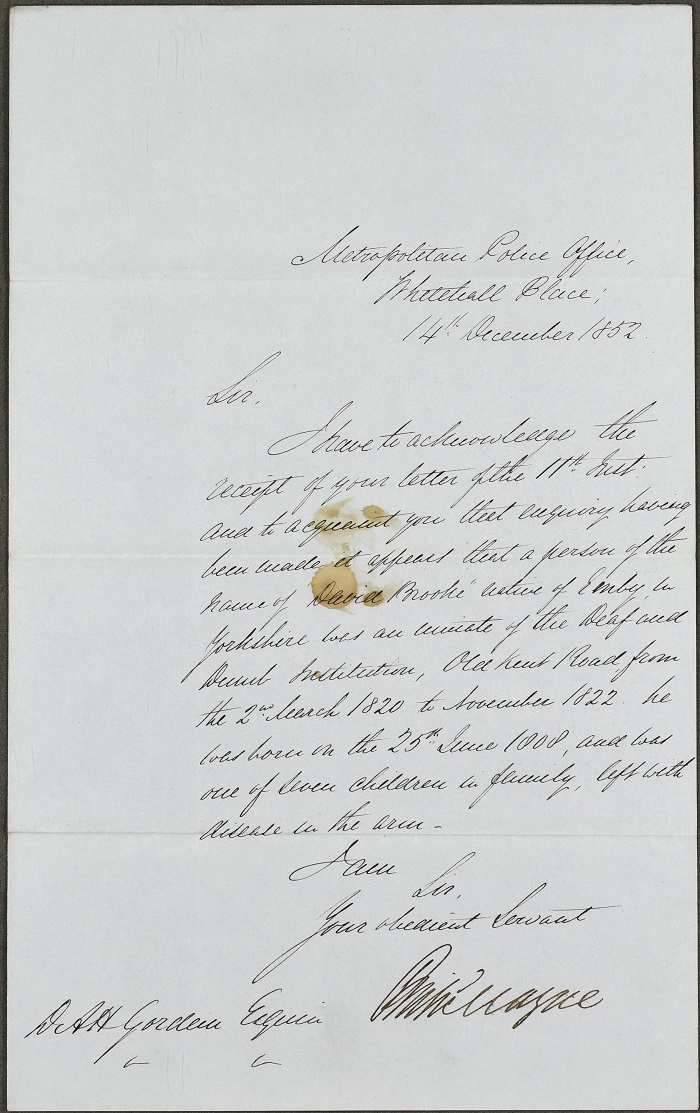 Metropolitan Police Office,
Whitehall Place;
14th December 1852.
Sir,
I have to acknowledge the
receipt of your letter of the 11th Inst:
and to acquaint you that enquiry having
been made it appears that a person of the
name of David Brooke native of Emby, in
Yorkshire was an inmate of the Deaf and
Dumb Institution, Old Kent Road from
the 2nd March 1820 to November 1822. he
was born on the 25th June 1808, and was
one of seven children in family, left with
disease in the arm -
I am
Sir,
Your obedient Servant
Mayne
D. A H Gordon Esquire